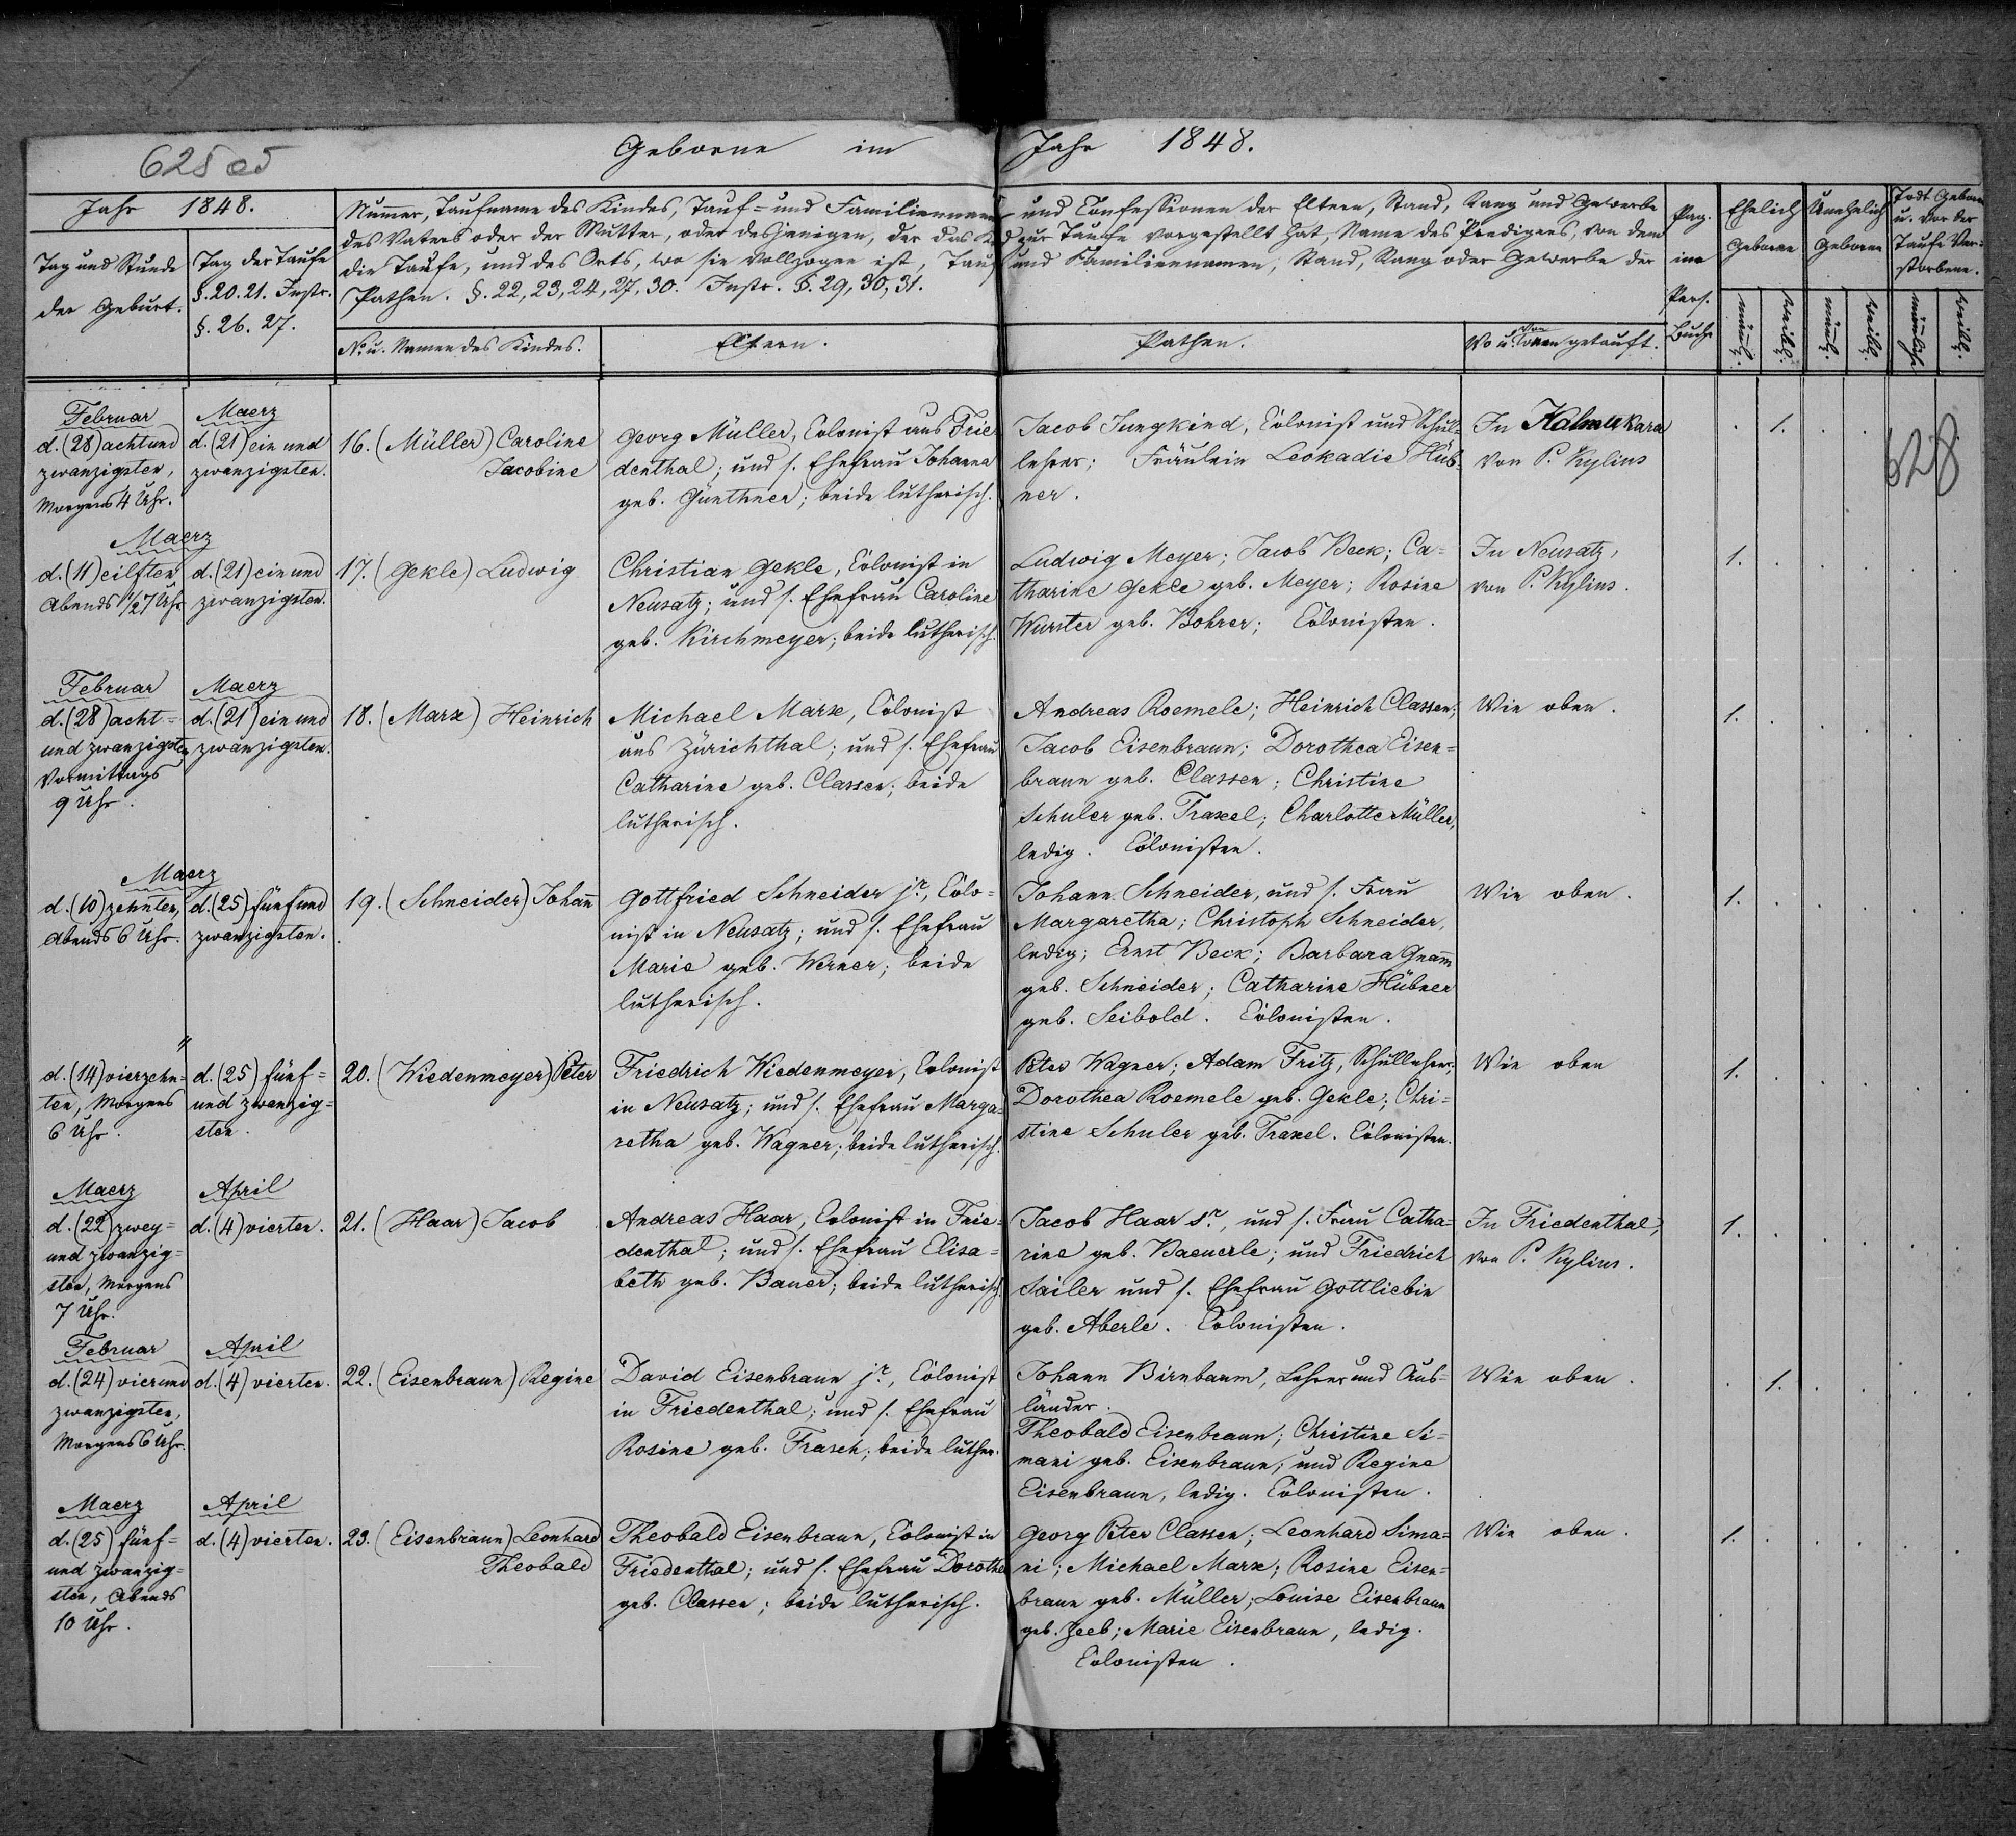 625 o5
Geborne im Jahr 1848.
Jahr 1848.
Tag und Stunde
der Geburt.
Tag der Taufe
§. 20. 21. Instr.
§. 26. 27.
Numer, Taufname des Kindes, Tauf= und Familiennamen und Confessionen der Eltern, Stand, Rang und Gewerbe
des Vaters oder der Mutter, oder desjenigen, der das Kind zur Taufe vorgestellt hat, Name des Predigers, von dem
die Taufe, und des Orts, wo sie vollzogen ist, Tauf und Familiennamen, Stand, Rang oder Gewerbe der
Pathen. §. 22, 23, 24, 27, 30. Instr. §. 29, 30, 31.
No. u. Namen des Kindes.
Eltern.
Pathen.
Wo u. von wem getauft.
Pag.
im
Pers.
Buche
Ehelich
Geborne
Unehelich
Geborne
Todt Geborne
u. vor der
Taufe Ver=
storbene.
männl.
weibl.
männl.
weibl.
männliche
weibl.
Februar
d. (28) achtund
zwanzigsten,
Morgens 4 Uhr.
Maerz
d. (21) ein und
zwanzigsten.
16. (Müller) Caroline
Jacobine
Georg Müller, Colonist aus Frie
denthal; und s. Ehefrau Johanna
geb. Günthner; beide lutherisch.
Jacob Jungkind, Colonist und Schul=
lehrer; Fräulein Leokadie Hüb=
ner.
In Kalmukkara
von P. Kylius
1.
628
Maerz
d. (11) eilften
Abends 1/2 7 Uhr
d. (21) ein und
zwanzigsten.
17. (Gekle) Ludwig
Christian Gekle, Colonist in
Neusatz; und s. Ehefrau Caroline
geb. Kirchmeyer; beide lutherisch.
Ludwig Meyer; Jacob Beck; Ca=
tharine Gekle geb. Meyer; Rosine
Wurster geb. Bohrer; Colonisten.
In Neusatz,
von P. Kylius.
1.
Februar
d. (28) acht=
und zwanzigsten
Vormittags
9 Uhr.
Maerz
d. (21) ein und
zwanzigsten.
18. (Marx) Heinrich
Michael Marx, Colonist
aus Zürichthal; und s. Ehefrau
Catharine geb. Classen; beide
lutherisch.
Andreas Roemele; Heinrich Classen;
Jacob Eisenbraun; Dorothea Eisen=
braun geb. Classen; Christine
Schuler geb. Traxel; Charlotte Müller,
ledig. Colonisten.
Wie oben.
1.
Maerz
d. (10) zehnten,
Abends 6 Uhr.
d. (25) fünfund
zwanzigsten.
19. (Schneider) Johann
Gottfried Schneider jr., Colo=
nist in Neusatz; und s. Ehefrau
Marie geb. Werner; beide
lutherisch.
Johann Schneider, und s. Frau
Margaretha; Christoph Schneider,
ledig; Ernst Beck; Barbara Gnam̄
geb. Schneider; Catharine Hübner
geb. Seibold. Colonisten.
Wie oben.
1.
"
d. (14) vierzehn=
ten, Morgens
6 Uhr.
d. (25) fünf=
und zwanzig=
sten.
20. (Wiedenmeyer) Peter
Friedrich Wiedenmeyer, Colonist
in Neusatz; und s. Ehefrau Marga=
retha geb. Wagner; beide lutherisch.
Peter Wagner; Adam Fritz, Schullehrer;
Dorothea Roemele geb. Gekle; Chri=
stine Schuler geb. Traxel. Colonisten.
Wie oben
1.
Maerz
d. (22) zwey=
und zwanzig=
sten, Morgens
7 Uhr.
April
d. (4) vierten.
21. (Haar) Jacob
Andreas Haar, Colonist in Frie=
denthal; und s. Ehefrau Elisa=
beth geb. Bauer; beide lutherisch.
Jacob Haar sr., und s. Frau Catha=
rine geb. Baeuerle; und Friedrich
Sailer und s. Ehefrau Gottliebin
geb. Aberle. Colonisten.
In Friedenthal,
von P. Kylius.
1.
Februar
d. (24) vierund
zwanzigsten,
Morgens 6 Uhr.
April
d. (4) vierten.
22. (Eisenbraun) Regine
David Eisenbraun jr., Colonist
in Friedenthal; und s. Ehefrau
Rosine geb. Frasch; beide luther.
Johann Birnbaum, Lehrer und Aus=
länder.
Theobald Eisenbraun; Christine Si=
mani geb. Eisenbraun; und Regine
Eisenbraun, ledig. Colonisten.
Wie oben.
1.
Maerz
d. (25) fünf=
und zwanzig=
sten, Abends
10 Uhr.
April
d. (4) vierten.
23. (Eisenbraun) Leonhard
Theobald
Theobald Eisenbraun, Colonist in
Friedenthal; und s. Ehefrau Dorothe
geb. Classen; beide lutherisch.
Georg Peter Classen; Leonhard Sima=
ni; Michael Marx; Rosine Eisen=
braun geb. Müller; Louise Eisenbraun
geb. Zeeb; Marie Eisenbraun, ledig.
Colonisten.
Wie oben.
1.